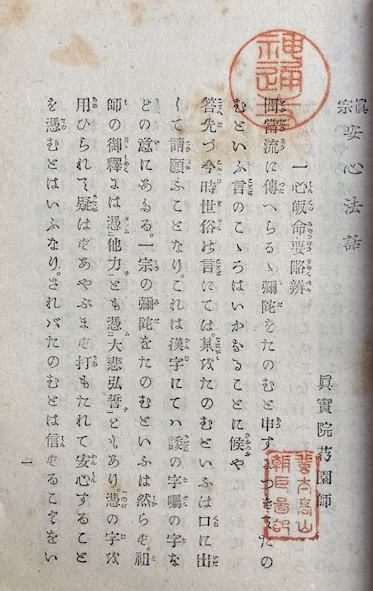 眞宗 安心法話
眞實院園師
一心皈命要略辨
問當流に傳へらるゝ彌陀をたのむと申すにつきたの
むといふ言のこゝろはいかなることに候や
答先づ今時世俗の言にては某をたのむといふは口に出
して請願ふことなり。これは漢字にてハの字囑の字な
どの意にあたる。一宗の彌陀をたのむといふは然らず。祖
師の御釋には憑㆓他力㆒とも憑㆓大悲弘誓㆒ともあり憑の字を
用ひられて疑はずあやぶまず打もたれて安心すること
を憑むとはいふなり。されバたのむとは信ずることをい
一